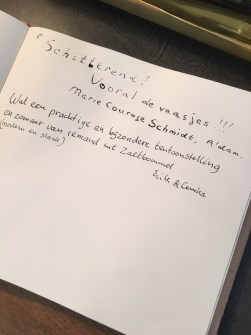 Schitterend!
Vooral de vaasjes !!!
Marie Courage Schmidt, A'dam.
Wat een prachtige en bijzondere tentoonstelling
en zomaar van iemand uit Zaltbommel
(modern en slank)
Erik &